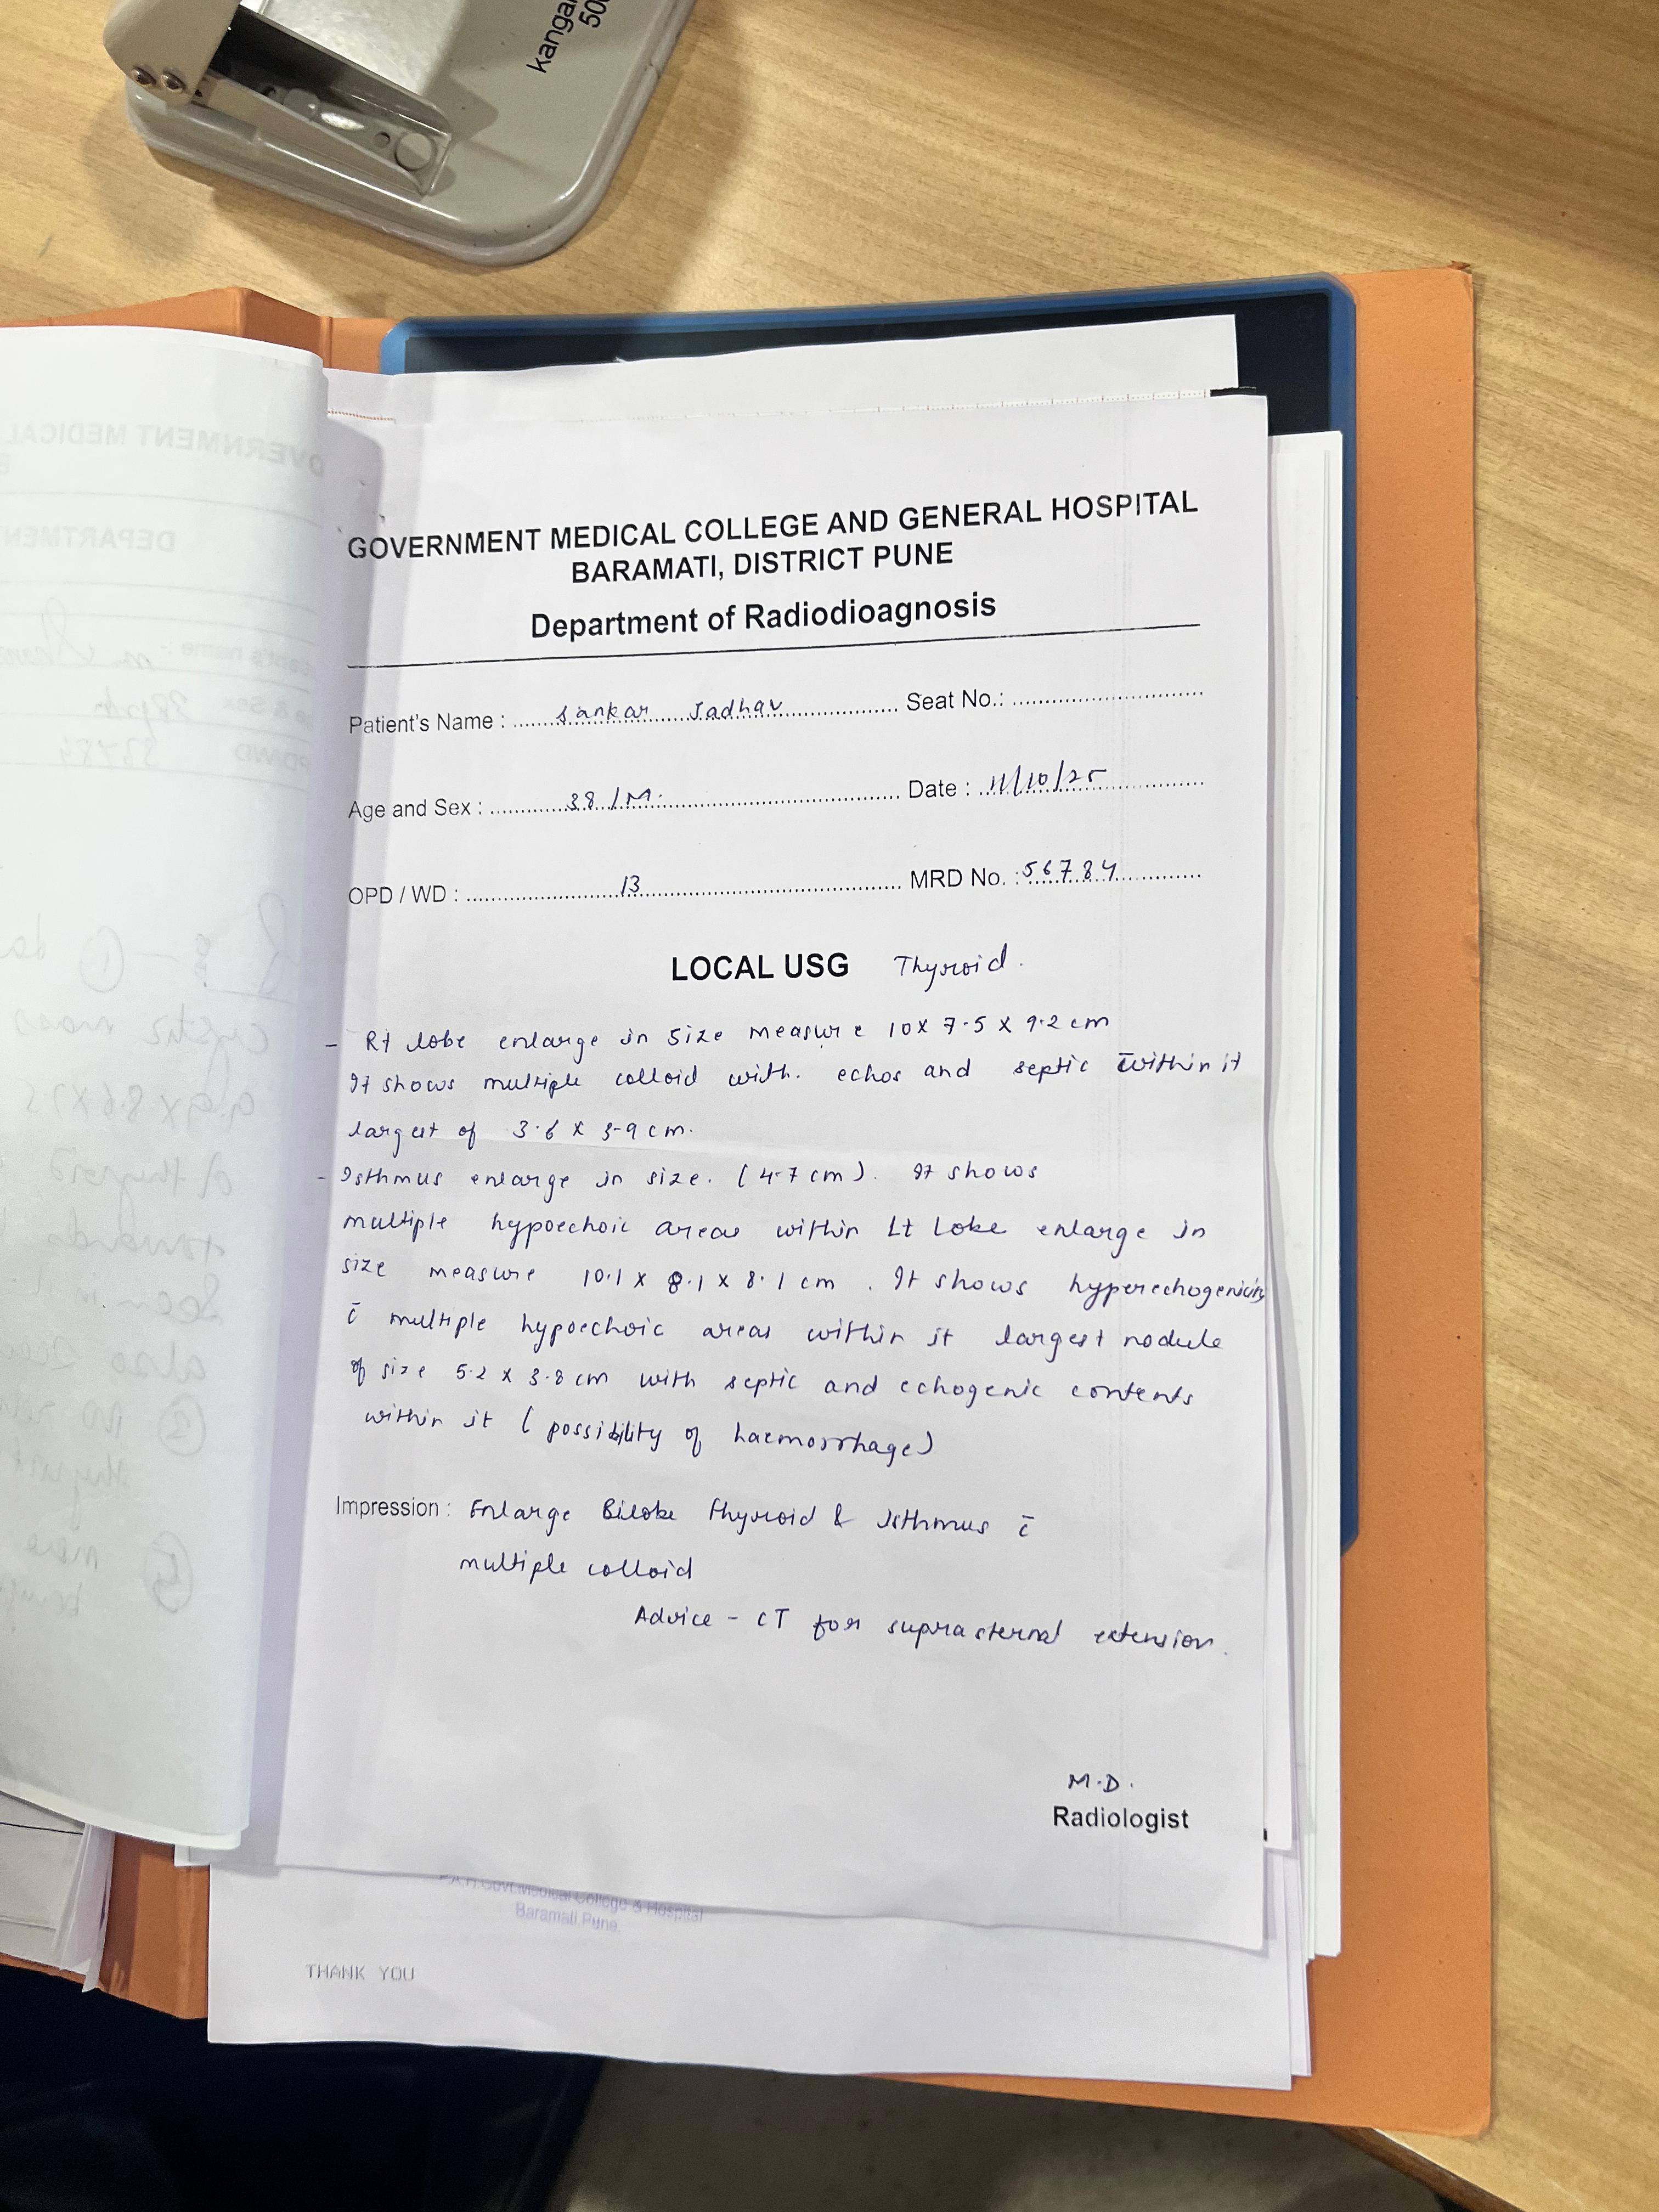 kangar
500
GOVERNMENT MEDICAL COLLEGE AND GENERAL HOSPITAL
BARAMATI, DISTRICT PUNE
Department of Radiodioagnosis
Patient's Name : Sankar Jadhav Seat No.:
Age and Sex : 38 / M. Date : 11/10/25
OPD / WD : 13 MRD No. : 56784
LOCAL USG Thyroid.
- Rt lobe enlarge in size measure 10 x 7.5 x 9.2 cm
It shows multiple colloid with. echos and septic within it
largest of 3.6 x 3.9 cm.
- Isthmus enlarge in size. (4.7 cm). It shows
multiple hypoechoic areas within Lt Lobe enlarge in
size measure 10.1 x 8.1 x 8.1 cm. It shows hyperechogenicity
c̄ multiple hypoechoic areas within it largest nodule
of size 5.2 x 3.8 cm with septic and echogenic contents
within it (possibility of haemorrhage)
Impression : Enlarge Bilobe thyroid & Isthmus c̄
multiple colloid
Advice - CT for suprasternal extension.
M.D.
Radiologist
Govt.Medical College & Hospital
Baramati.Pune.
THANK YOU